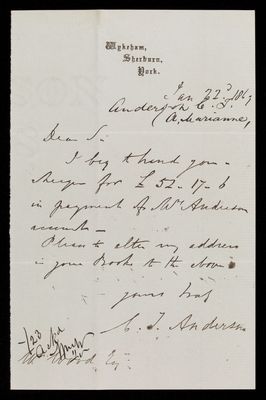 Wykeham,
Sherburn,
York.
Jan 22d 1867
Anderson C. J.
(A. Marianne)
Dear Sir
I beg to hand you
cheque for £ 52-17-6
in payment of Mrs Anderson
account
Please to alter my address
in your Books to the above
yours truly
C. J. Anderson
1/23
Ackd
Wood Esq